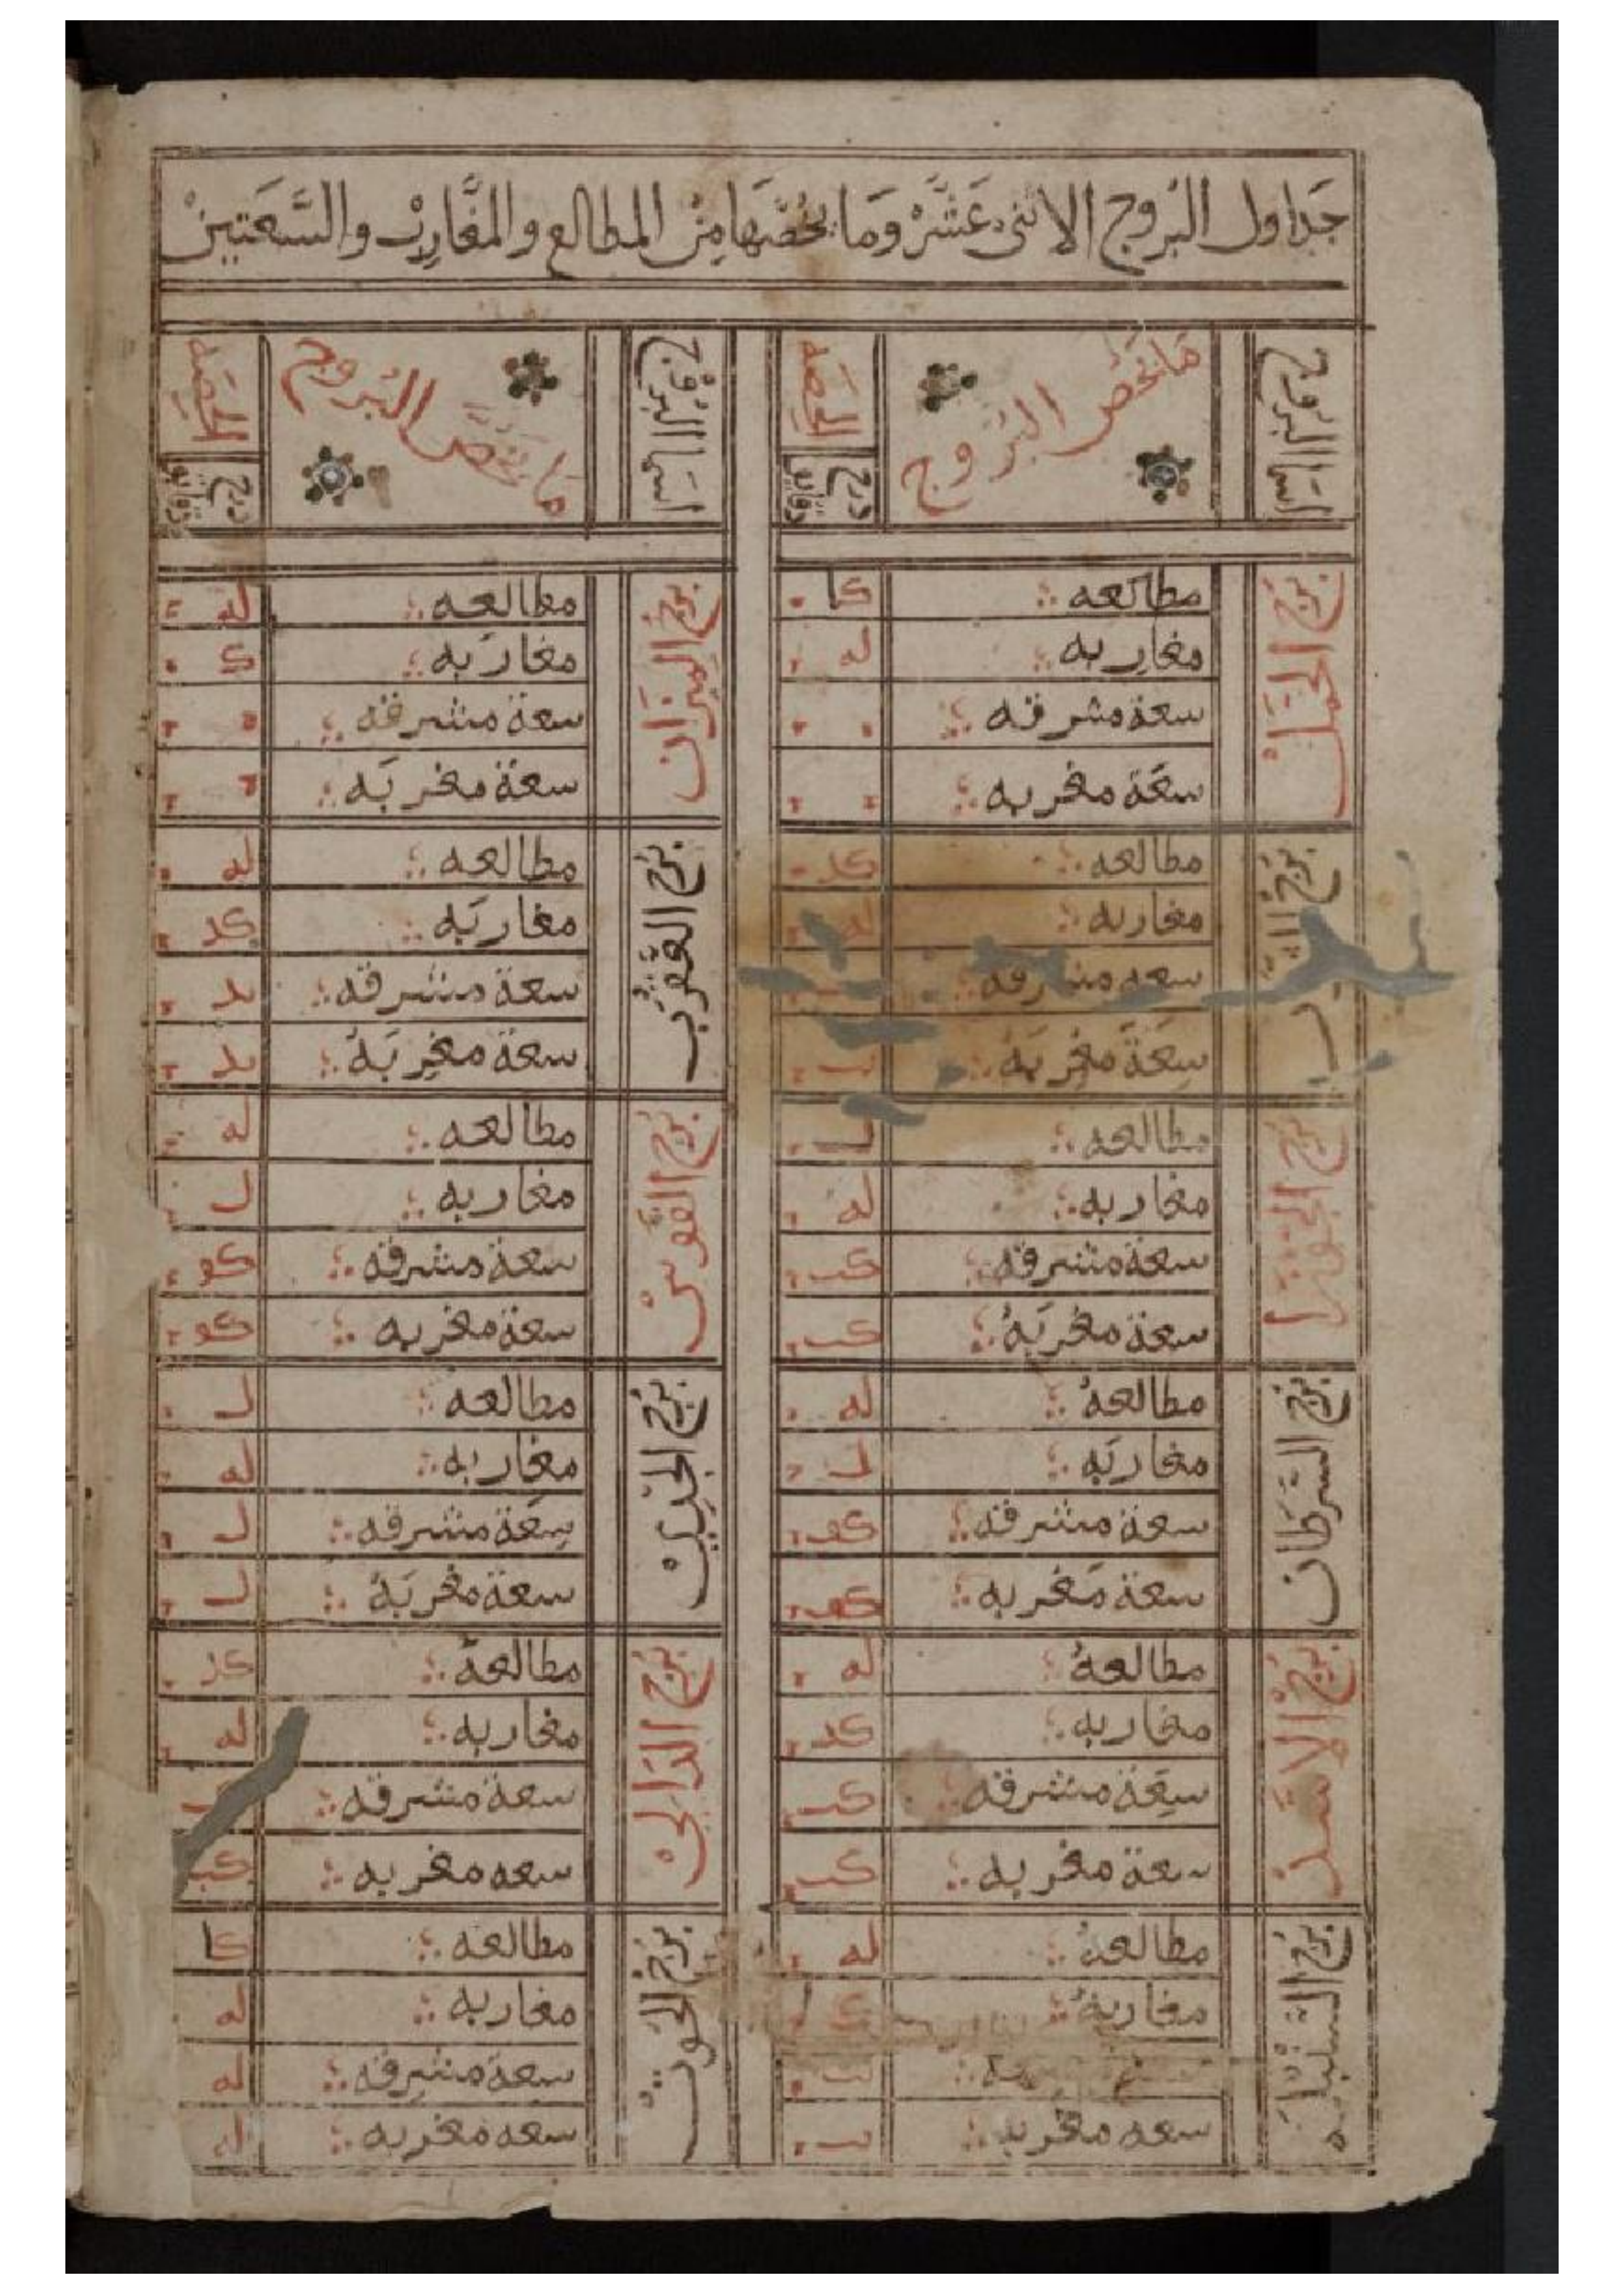 جَدَاول البُروج الاثنى عَشَرْ وَمَا يخُصّهَا مِنْ المطالع والمغَارِبْ والسَّعَتينْ
اسمآ البروج
مَا يَخُص البُرُوج
الحِصَه
درج
دقايق
برج الحَمَل
مطالعه كا
مغاربه له
سعة مشرقه
سعَة مغربه
برج
مطالعه كد
مغاربه
سعه مشرقه
سِعَة مغربَهُ
برج الجَوْزا
مطالعه ل
مغاربه له
سعة مشرقه كب
سعة مغربَهُ كب
برج السَّرَطان
مطالعهُ له
مغاربَه ل
سعة مشرقه كو
سعة مَغربه كو
برج الاسَدْ
مطالعهُ له
مغاربه كد
سِعَة مشرقه كب
سعة مغربه كب
برج السُّنْبُلَه
مطالعهُ له
مغاربهُ
سعه مغربه
اسمآ البروج
مَا يَخُصَّ البُروج
الحِصَه
درج
دقايق
برج الميزَان
مطالعه له
مغارَبه ك
سعة مشرقه
سعة مغربَه
برج العَقْرَب
مطالعه له
مغاربَه كد
سعة مشرقه يد
سعة مغربَهُ يد
برج القَوسْ
مطالعه له
مغاربه ل
سعة مشرقه كو
سعة مغربه كو
برج الجَديْ
مطالعهُ ل
مغاربه له
سِعَة مشرقه ل
سعة مغربَهُ ل
برج الدَاليْ
مطالعهُ كد
مغاربه له
سعة مشرقه
سعه مغربه كب
برج الحُوتْ
مطالعه كا
مغاربه له
سعة مشرقه له
سعه مغربه له